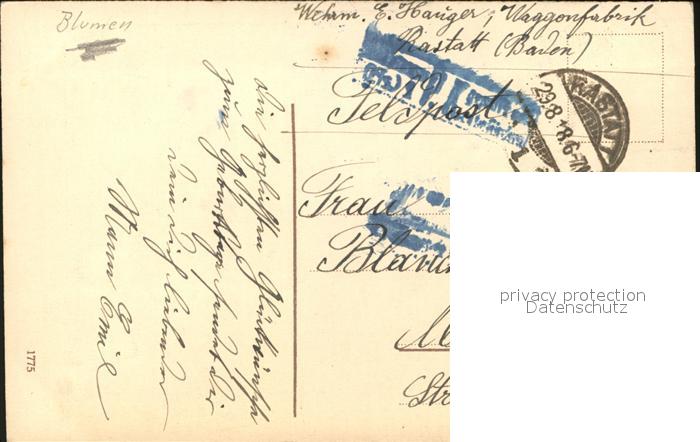 Blumen
Wehrm. E. Hauger, Waggonfabrik
Rastatt (Baden)
Feldpost.
RASTATT
29.8.18.6-7N.
1
Frau
Blan
Str
privacy protection
Datenschutz
die herzlichsten Glückwünsche
zum Geburtstage sendet dir
dein dich liebender
Mann Emil
1775